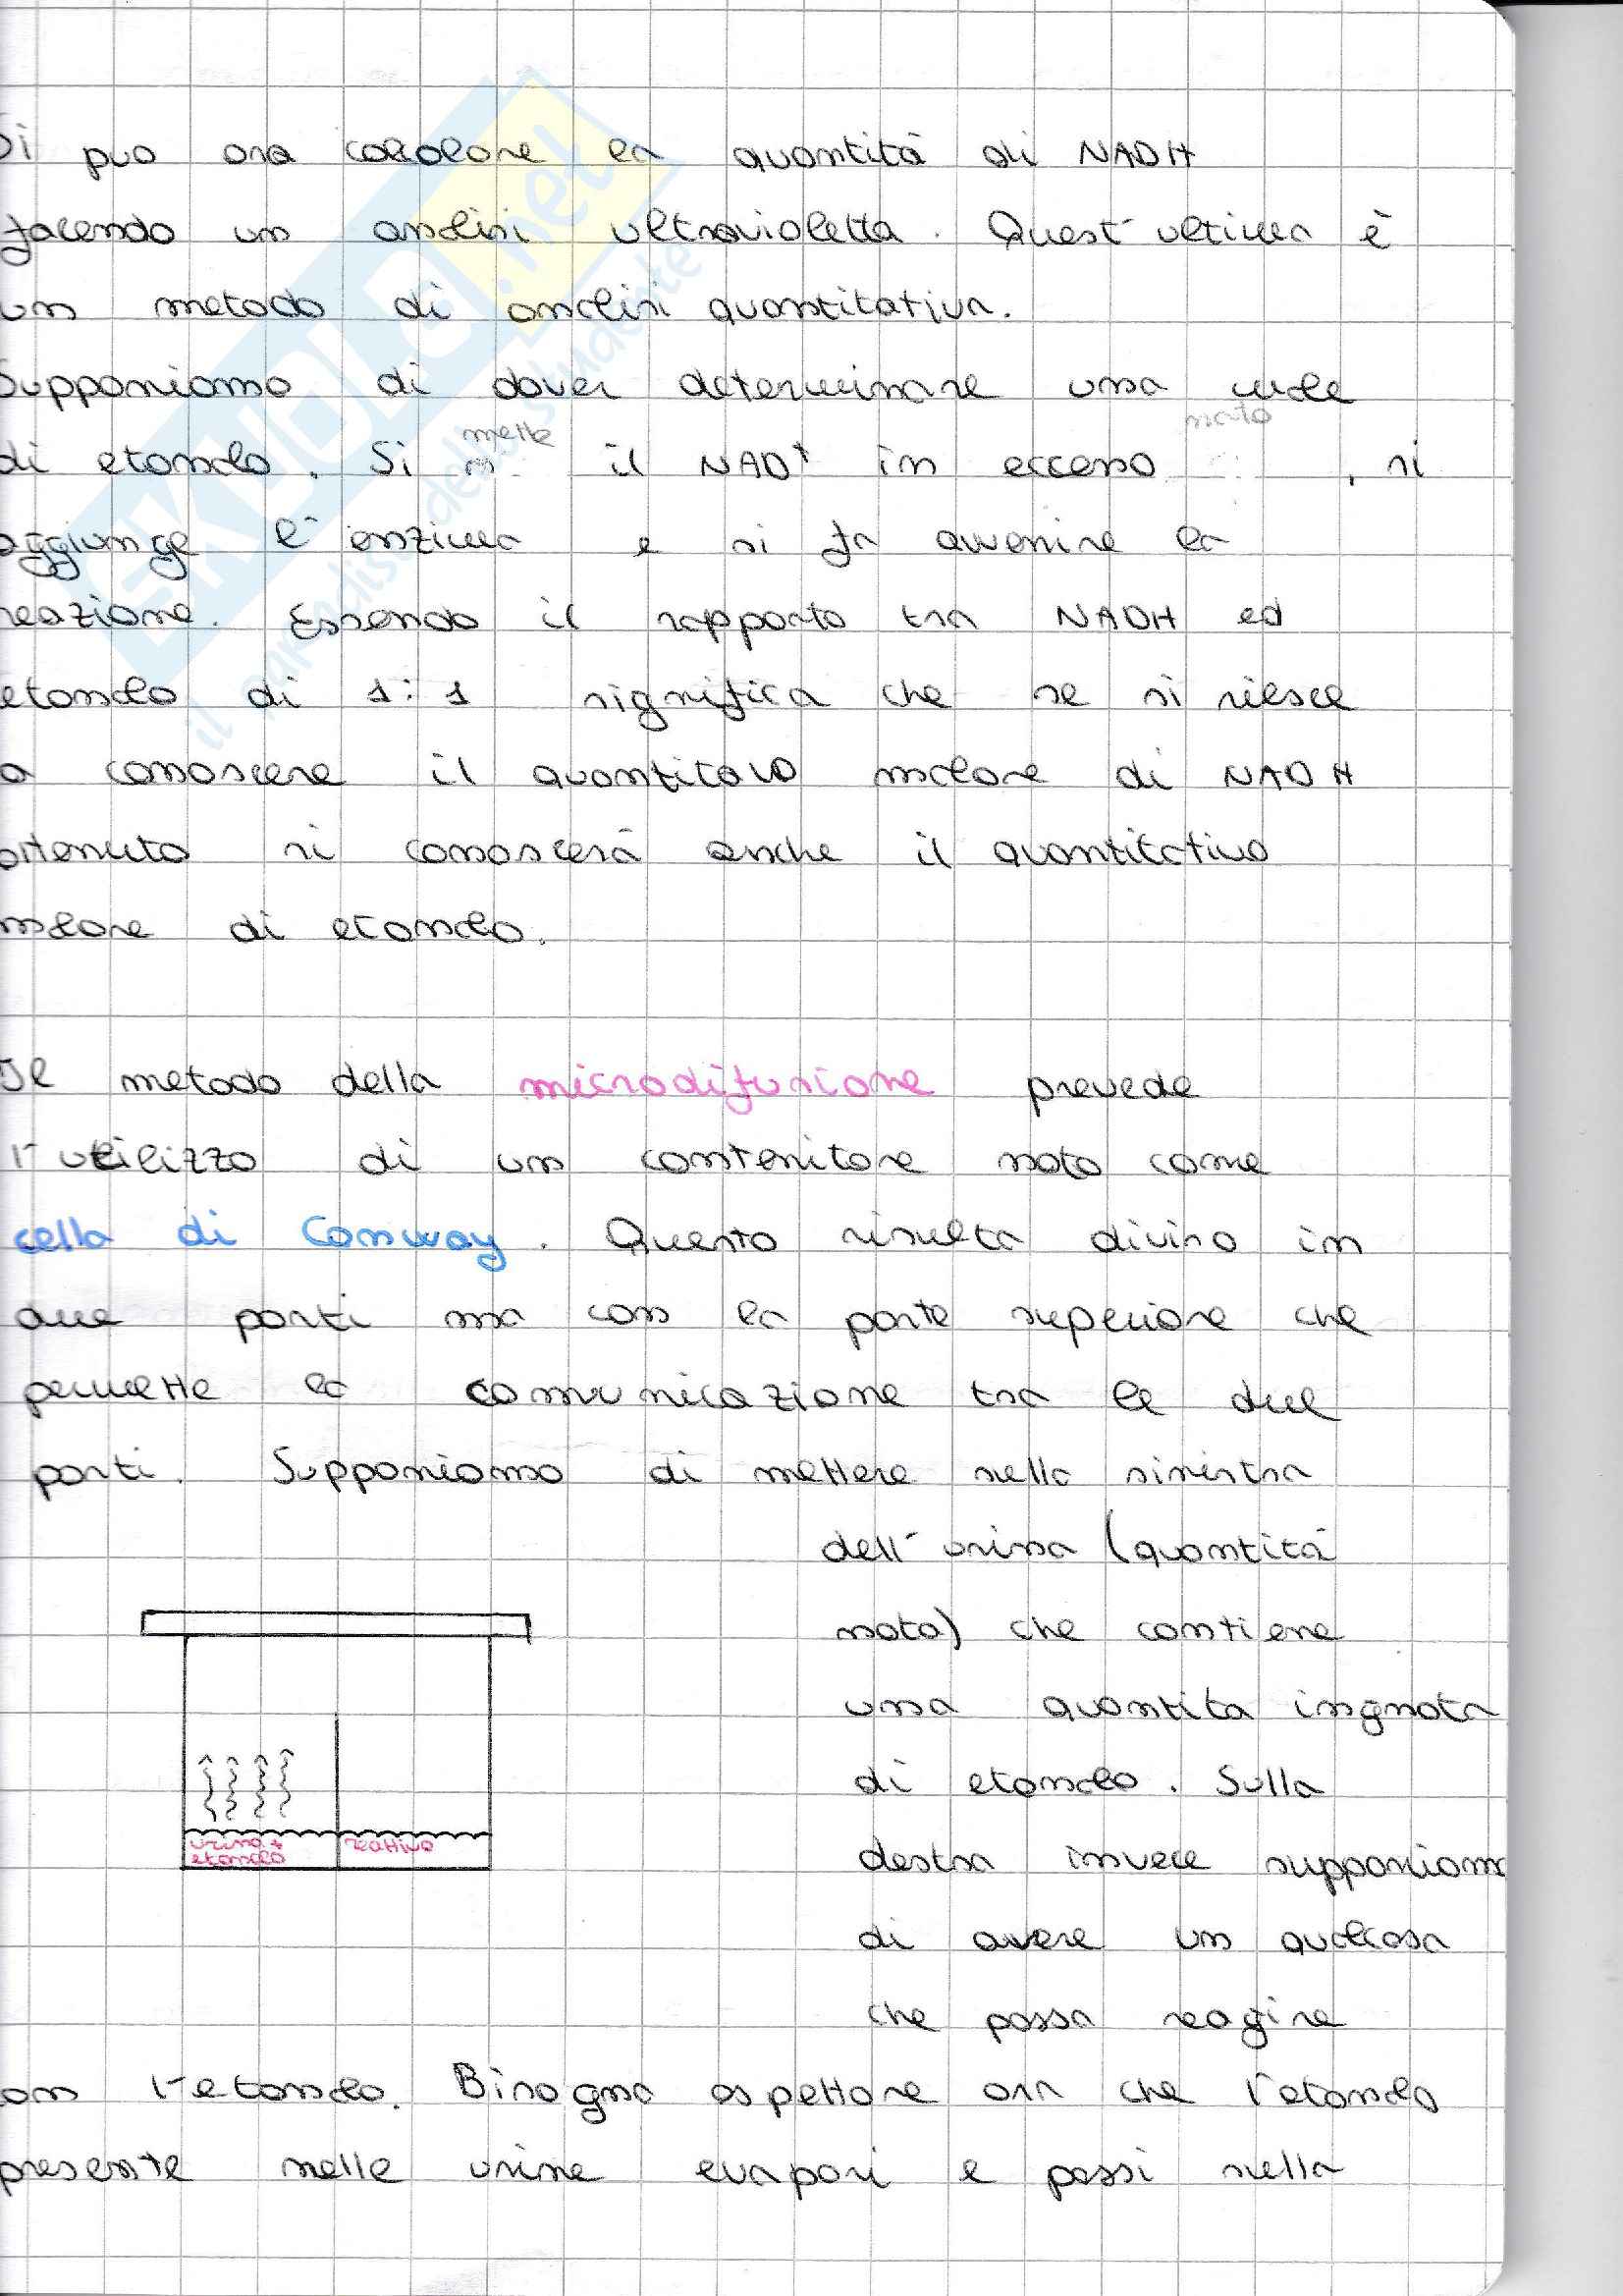 Si può ora calcolare la quantità di NADH
facendo un analisi ultravioletta. Quest'ultima è
un metodo di analisi quantitativa.
Supponiamo di dover determinare una mole
di etanolo. Si mette il NAD+ in eccesso noto, si
aggiunge l'enzima e si fa avvenire la
reazione. Essendo il rapporto tra NADH ed
etanolo di 1:1 significa che se si riesce
a conoscere il quantitavo molare di NADH
ottenuto si conoscerà anche il quantitativo
molare di etanolo.
Il metodo della microdifusione prevede
l'utilizzo di un contenitore noto come
cella di Conway. Questo risulta diviso in
due parti ma con la parte superiore che
permette la comunicazione tra le due
parti. Supponiamo di mettere sulla sinistra
dell'urina (quantità
nota) che contiene
una quantita ingnota
di etanolo. Sulla
destra invece supponiamo
di avere un qualcosa
che possa reagire
urina +
etanolo
reattivo
con l'etanolo. Bisogna aspettare ora che l'etanolo
presente nelle urine evapori e passi sulla
SKUOLA.net
il paradiso dello studente